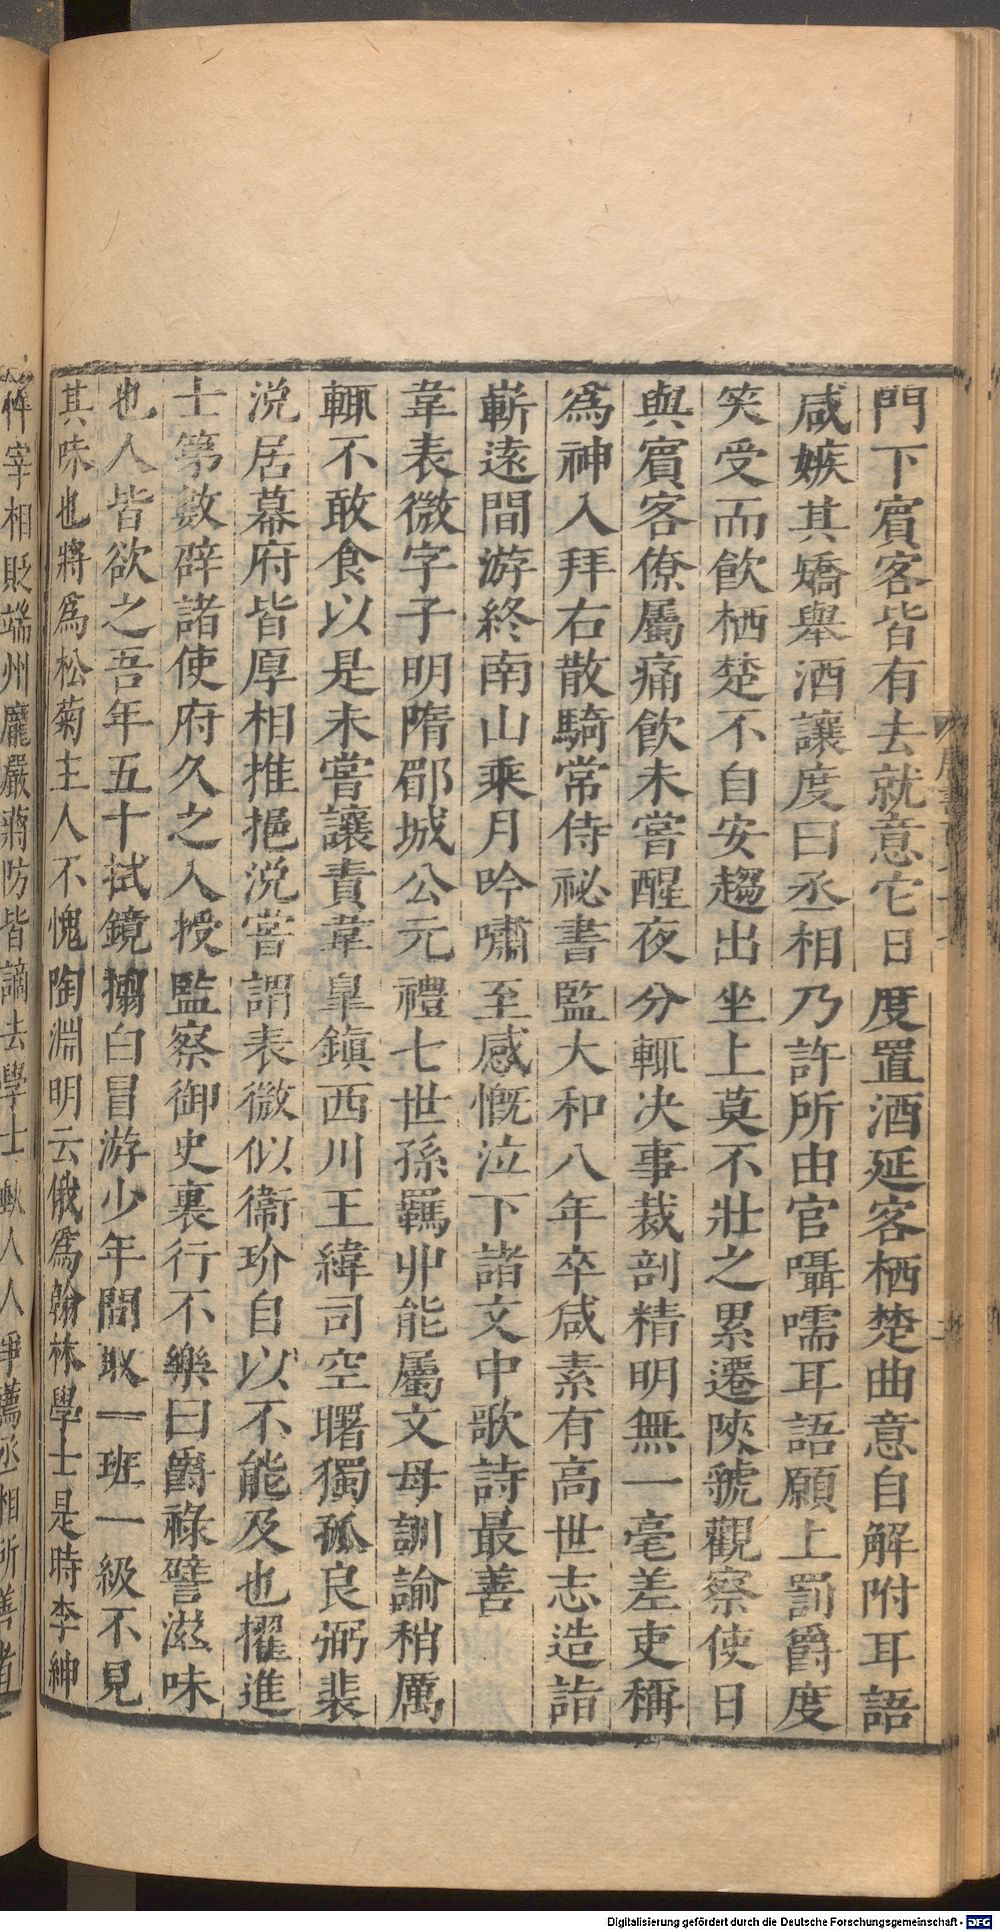 門下賓客皆有去就意它日度置酒延客栖楚曲意自解附耳語
咸嫉其矯舉酒讓度曰丞相乃許所由官囁嚅耳語願上罰爵度
笑受而飲栖楚不自安趨出坐上莫不壯之累遷陝虢觀察使日
與賓客僚屬痛飲未嘗醒夜分輒决事裁剖精明無一毫差吏稱
為神入拜右散騎常侍祕書監大和八年卒咸素有高世志造詣
嶄遠間游終南山乘月吟嘯至感慨泣下諸文中歌詩最善
韋表微字子明隋郿城公元禮七世孫羈丱能屬文母訓諭稍厲
輒不敢食以是未嘗讓責韋臯鎮西川王緯司空曙獨孤良弼裴
涚居幕府皆厚相推挹涚嘗謂表微似衞玠自以不能及也擢進
士第數辟諸使府久之入授監察御史裏行不樂曰爵祿譬滋味
也人皆欲之吾年五十拭鏡搦白冒游少年間取一班一級不見
其味也將為松菊主人不愧陶淵明云俄為翰林學士是時李紳
宰相貶端州龐嚴蔣防皆謫去學士缺人人爭薦丞相所善者
Digitalisierung gefördert durch die Deutsche Forschungsgemeinschaft - DFG